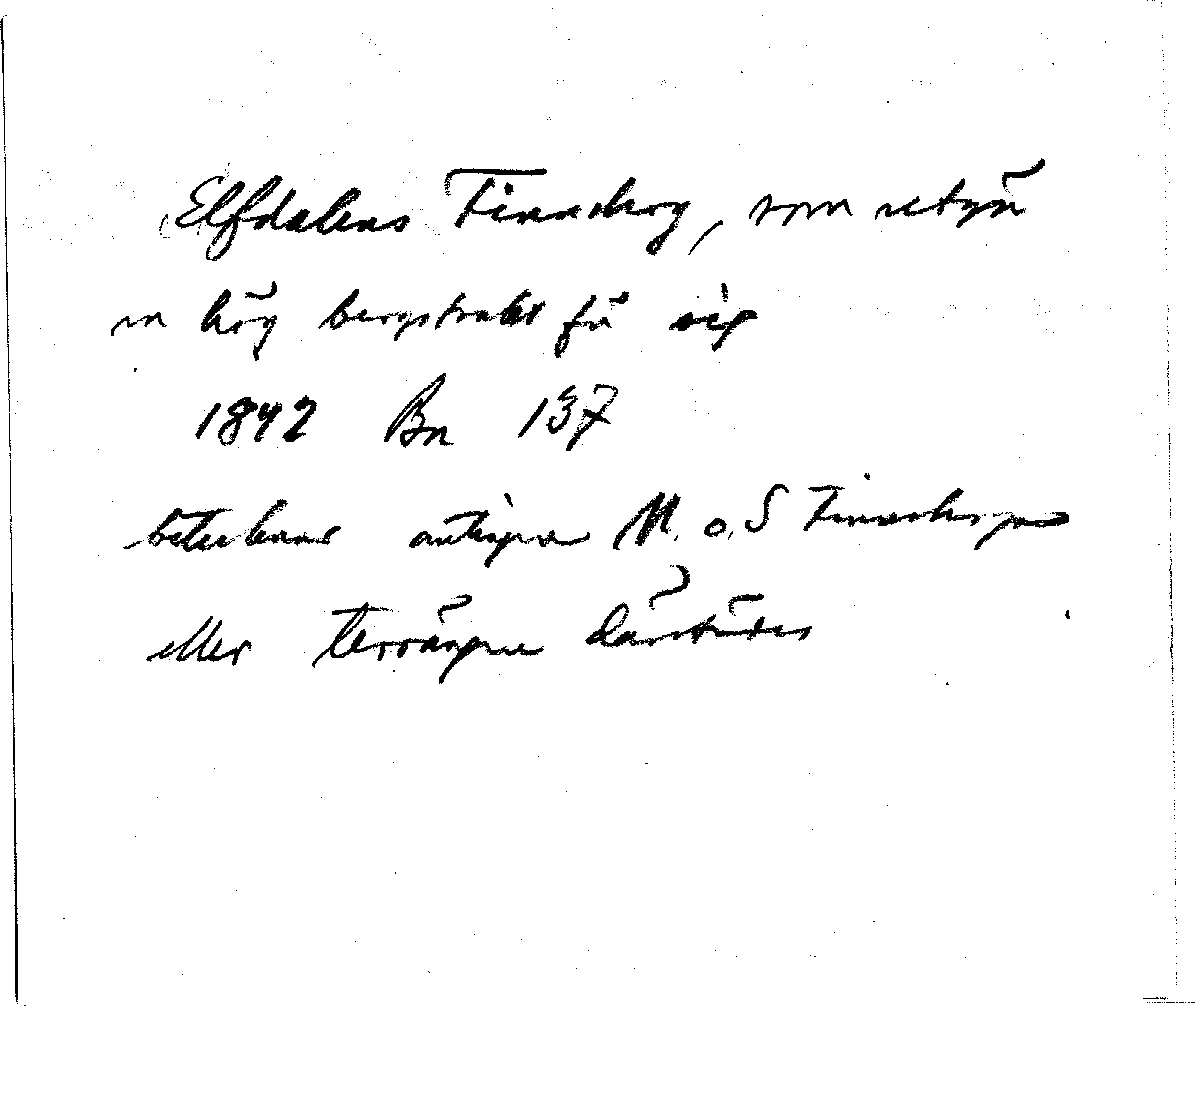 Elfdalens Finnskog, som utgör
en hög bergstrakt för sig
1842 Bn 137
betecknar antingen N. o. S Finnskogen
eller terrängen däremellan